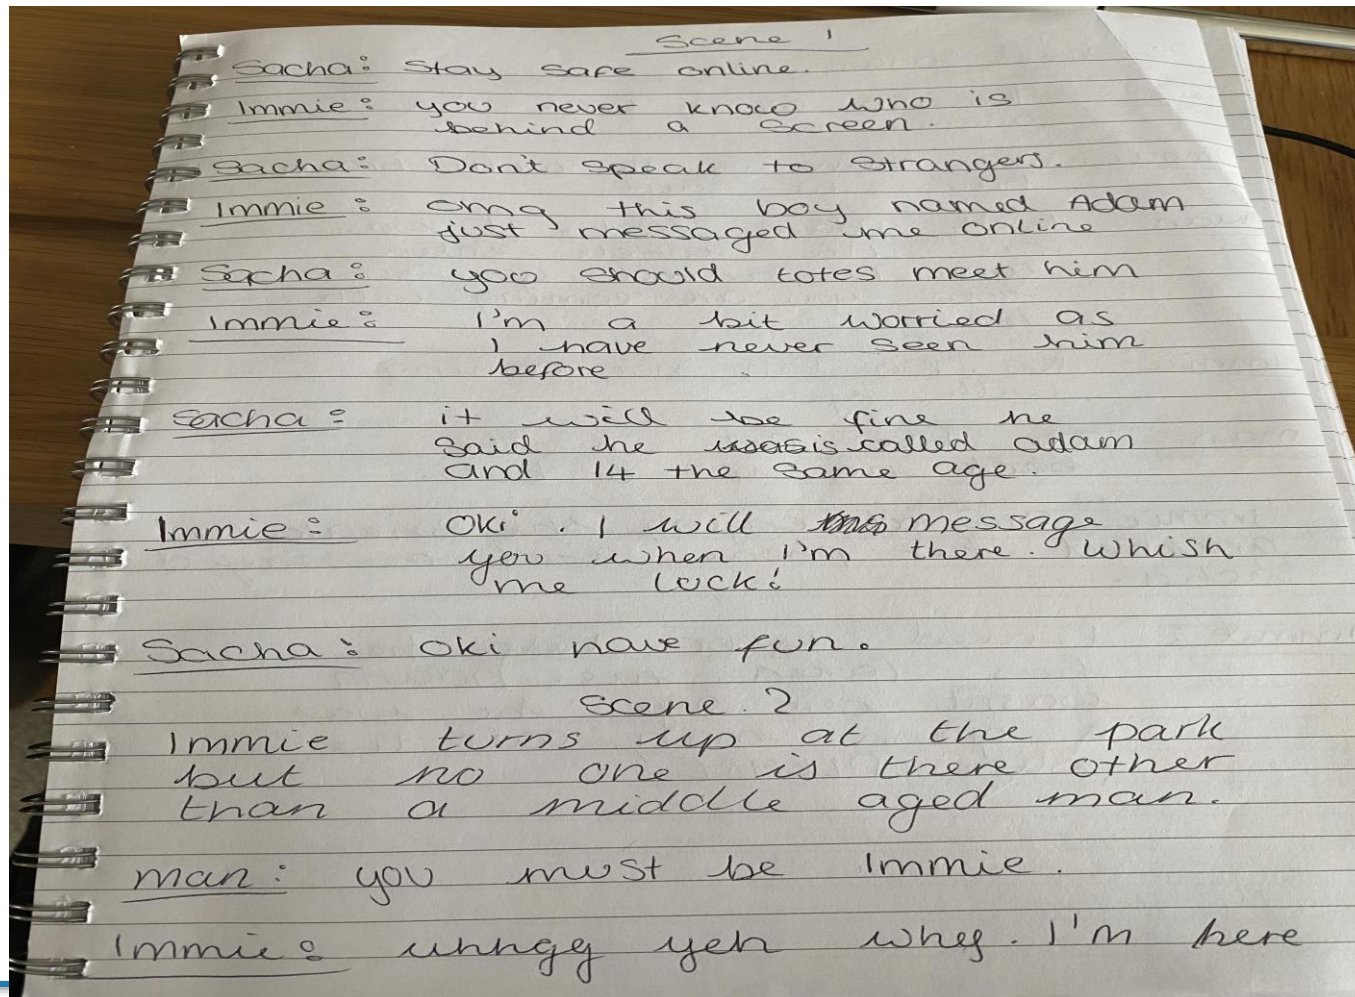 Scene 1
Sacha: Stay safe online.
Immie: you never know who is
behind a screen.
Sacha: Don't speak to strangers.
Immie: omg this boy named Adam
just messaged me online
Sacha: you should totes meet him
Immie: I'm a bit worried as
I have never seen him
before
Sacha: it will be fine he
said he is called adam
and 14 the same age.
Immie: Oki. I will message
you when I'm there. Whish
me luck!
Sacha: Oki have fun.
Scene. 2
Immie turns up at the park
but no one is there other
than a middle aged man.
man: you must be Immie.
Immie: yeh whey. I'm here